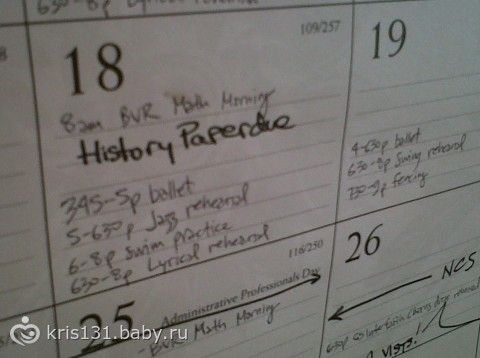 630-8p Lyrical rehearsal
18
109/257
8am BVR Math Morning
History Paper due
345-5p ballet
5-630p Jazz rehearsal
6-8p Swim practice
630-8p Lyrical rehearsal
19
4-630p ballet
630-8p Swing rehearsal
730-9p fencing
25
116/250
Administrative Professionals Day
BVR Math Morning
26
NCS
kris131.baby.ru